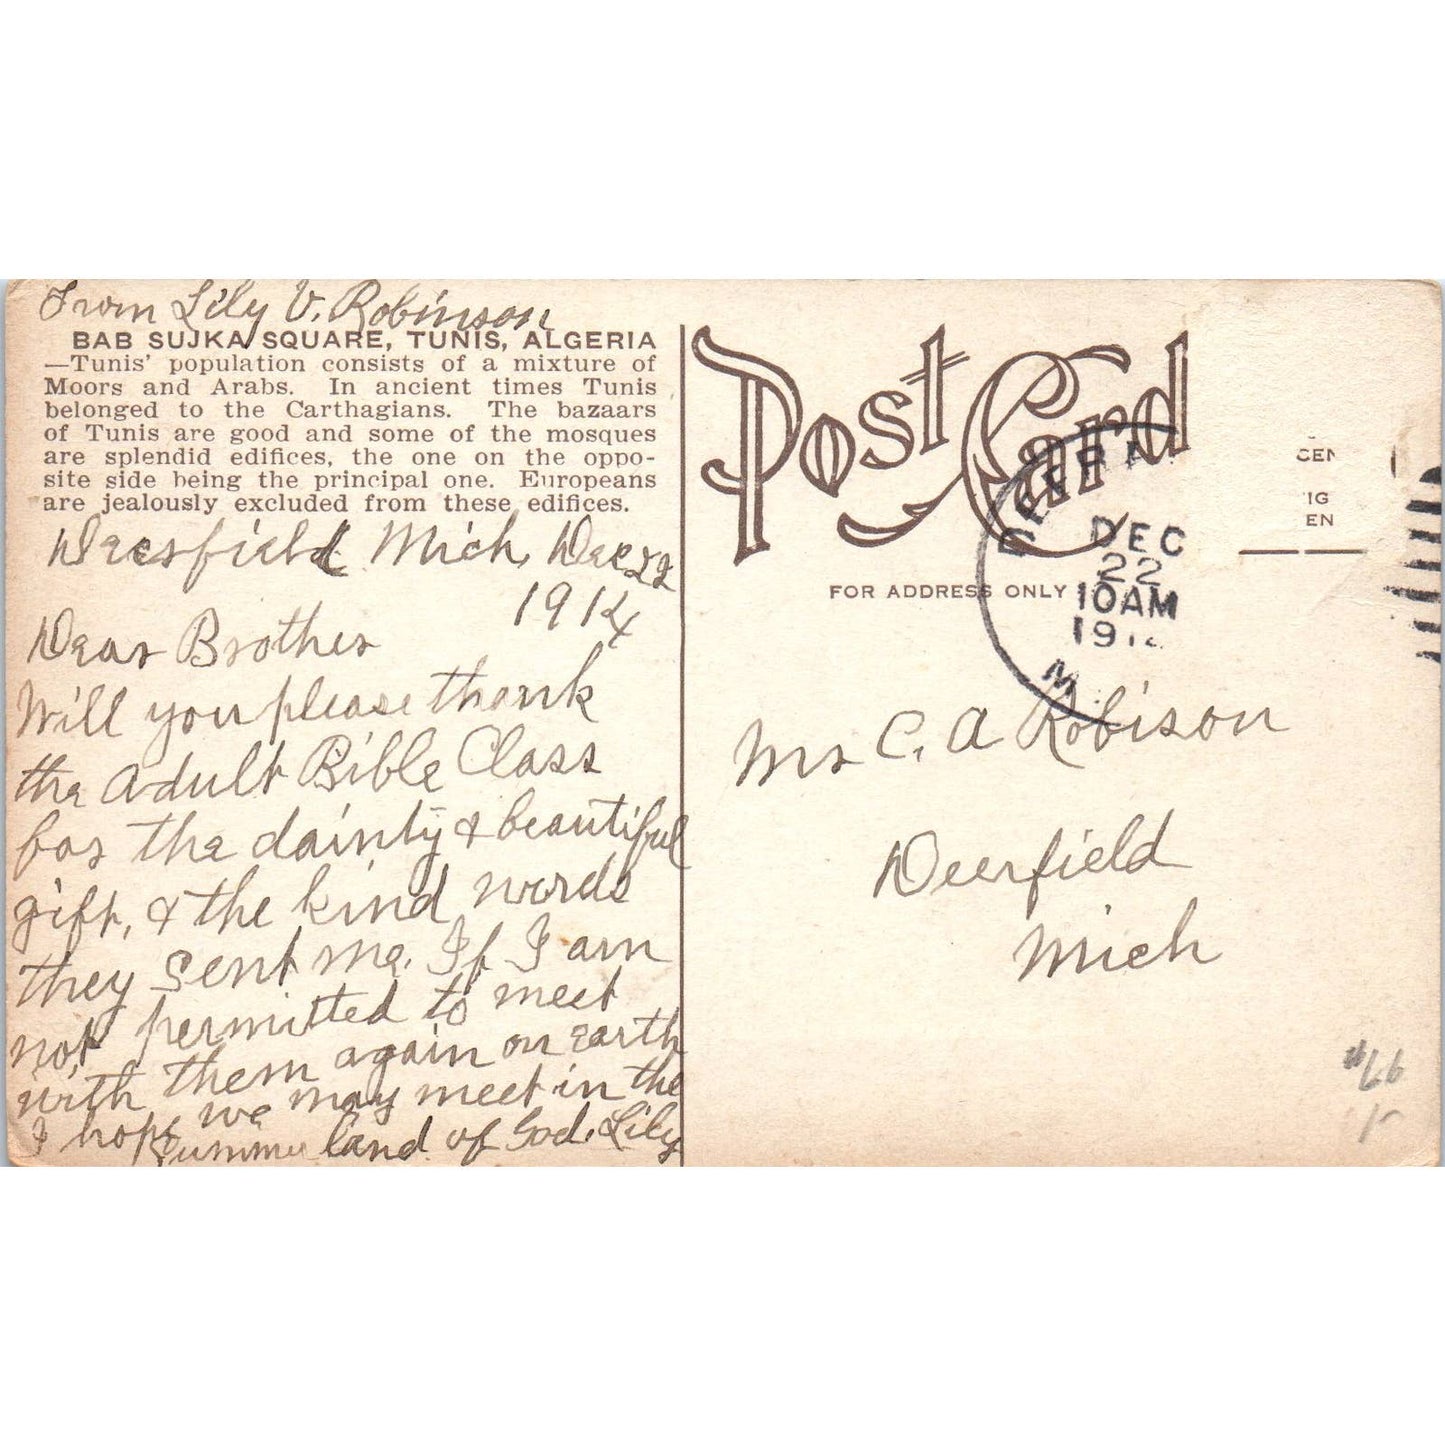 From Lily V. Robinson
BAB SUJKA SQUARE, TUNIS, ALGERIA
—Tunis' population consists of a mixture of
Moors and Arabs. In ancient times Tunis
belonged to the Carthagians. The bazaars
of Tunis are good and some of the mosques
are splendid edifices, the one on the oppo-
site side being the principal one. Europeans
are jealously excluded from these edifices.
Deerfield Mich, Dec 22
1914
Dear Brother
Will you please thank
the Adult Bible Class
for the dainty & beautiful
gift, & the kind words
they sent me. If I am
not permitted to meet
with them again on earth
I hope we may meet in the
Summer land of God. Lily
Post Card
CEN
IG
EN
FOR ADDRESS ONLY
DEC
22
10AM
191
M
Mr C. A Robison
Deerfield
Mich
#66